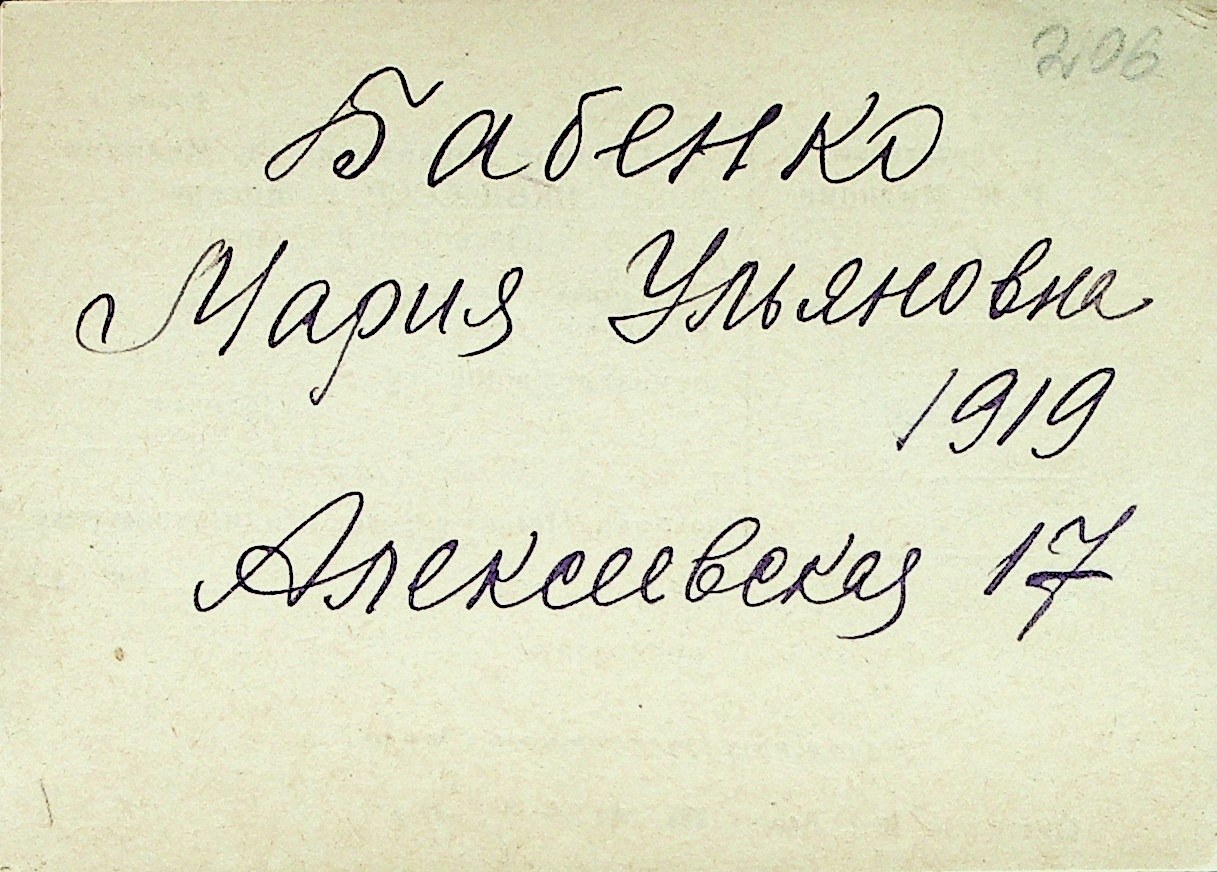 206
Бабенко
Мария Ульяновна
1919
Алексеевская 17